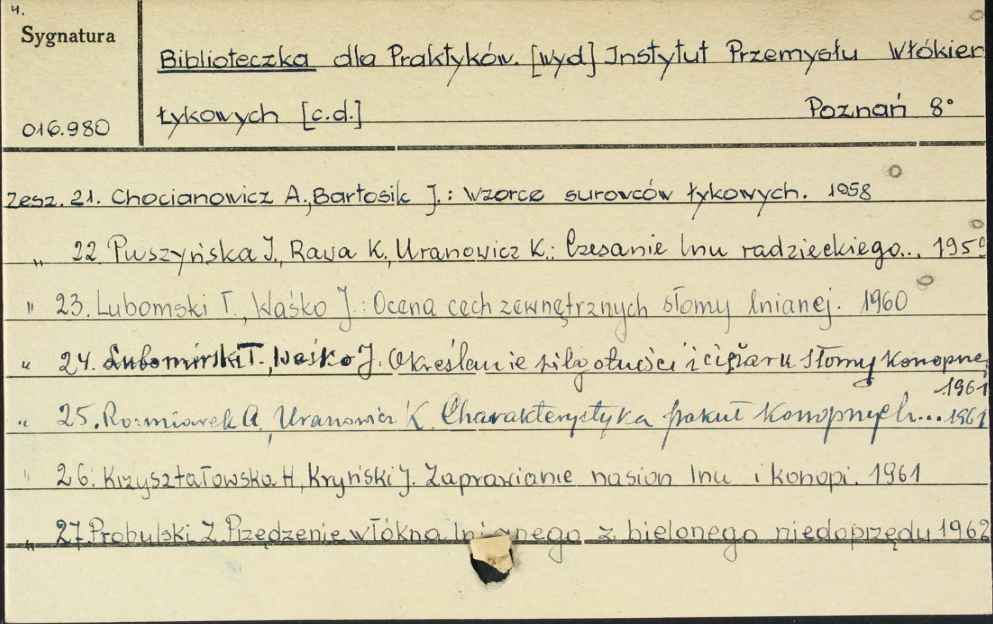 4.
Sygnatura
Biblioteczka dla Praktyków. [wyd] Instytut Przemysłu Włókien
Łykowych [c.d.] Poznań 8°
016.980
Zesz. 21. Chocianowicz A., Bartosik J.: Wzorce surowców łykowych. 1958
„ 22. Puszyńska J., Rawa K., Uranowicz K.: Czesanie lnu radzieckiego... 195
" 23. Lubomski T., Waśko J.: Ocena cech zewnętrznych słomy lnianej. 1960
" 24. T., Waśko J. Określanie i ciężaru słomy konopnej
1961
" 25. Rozmiarek A, Uranowicz K. Charakterystyka pakuł konopnych... 1961
" 26. Krzyształowska H, Kryński J. Zaprawianie nasion lnu i konopi. 1961
„ 27. Probulski Z. Przędzenie włókna lnianego z bielonego niedoprzędu 1962